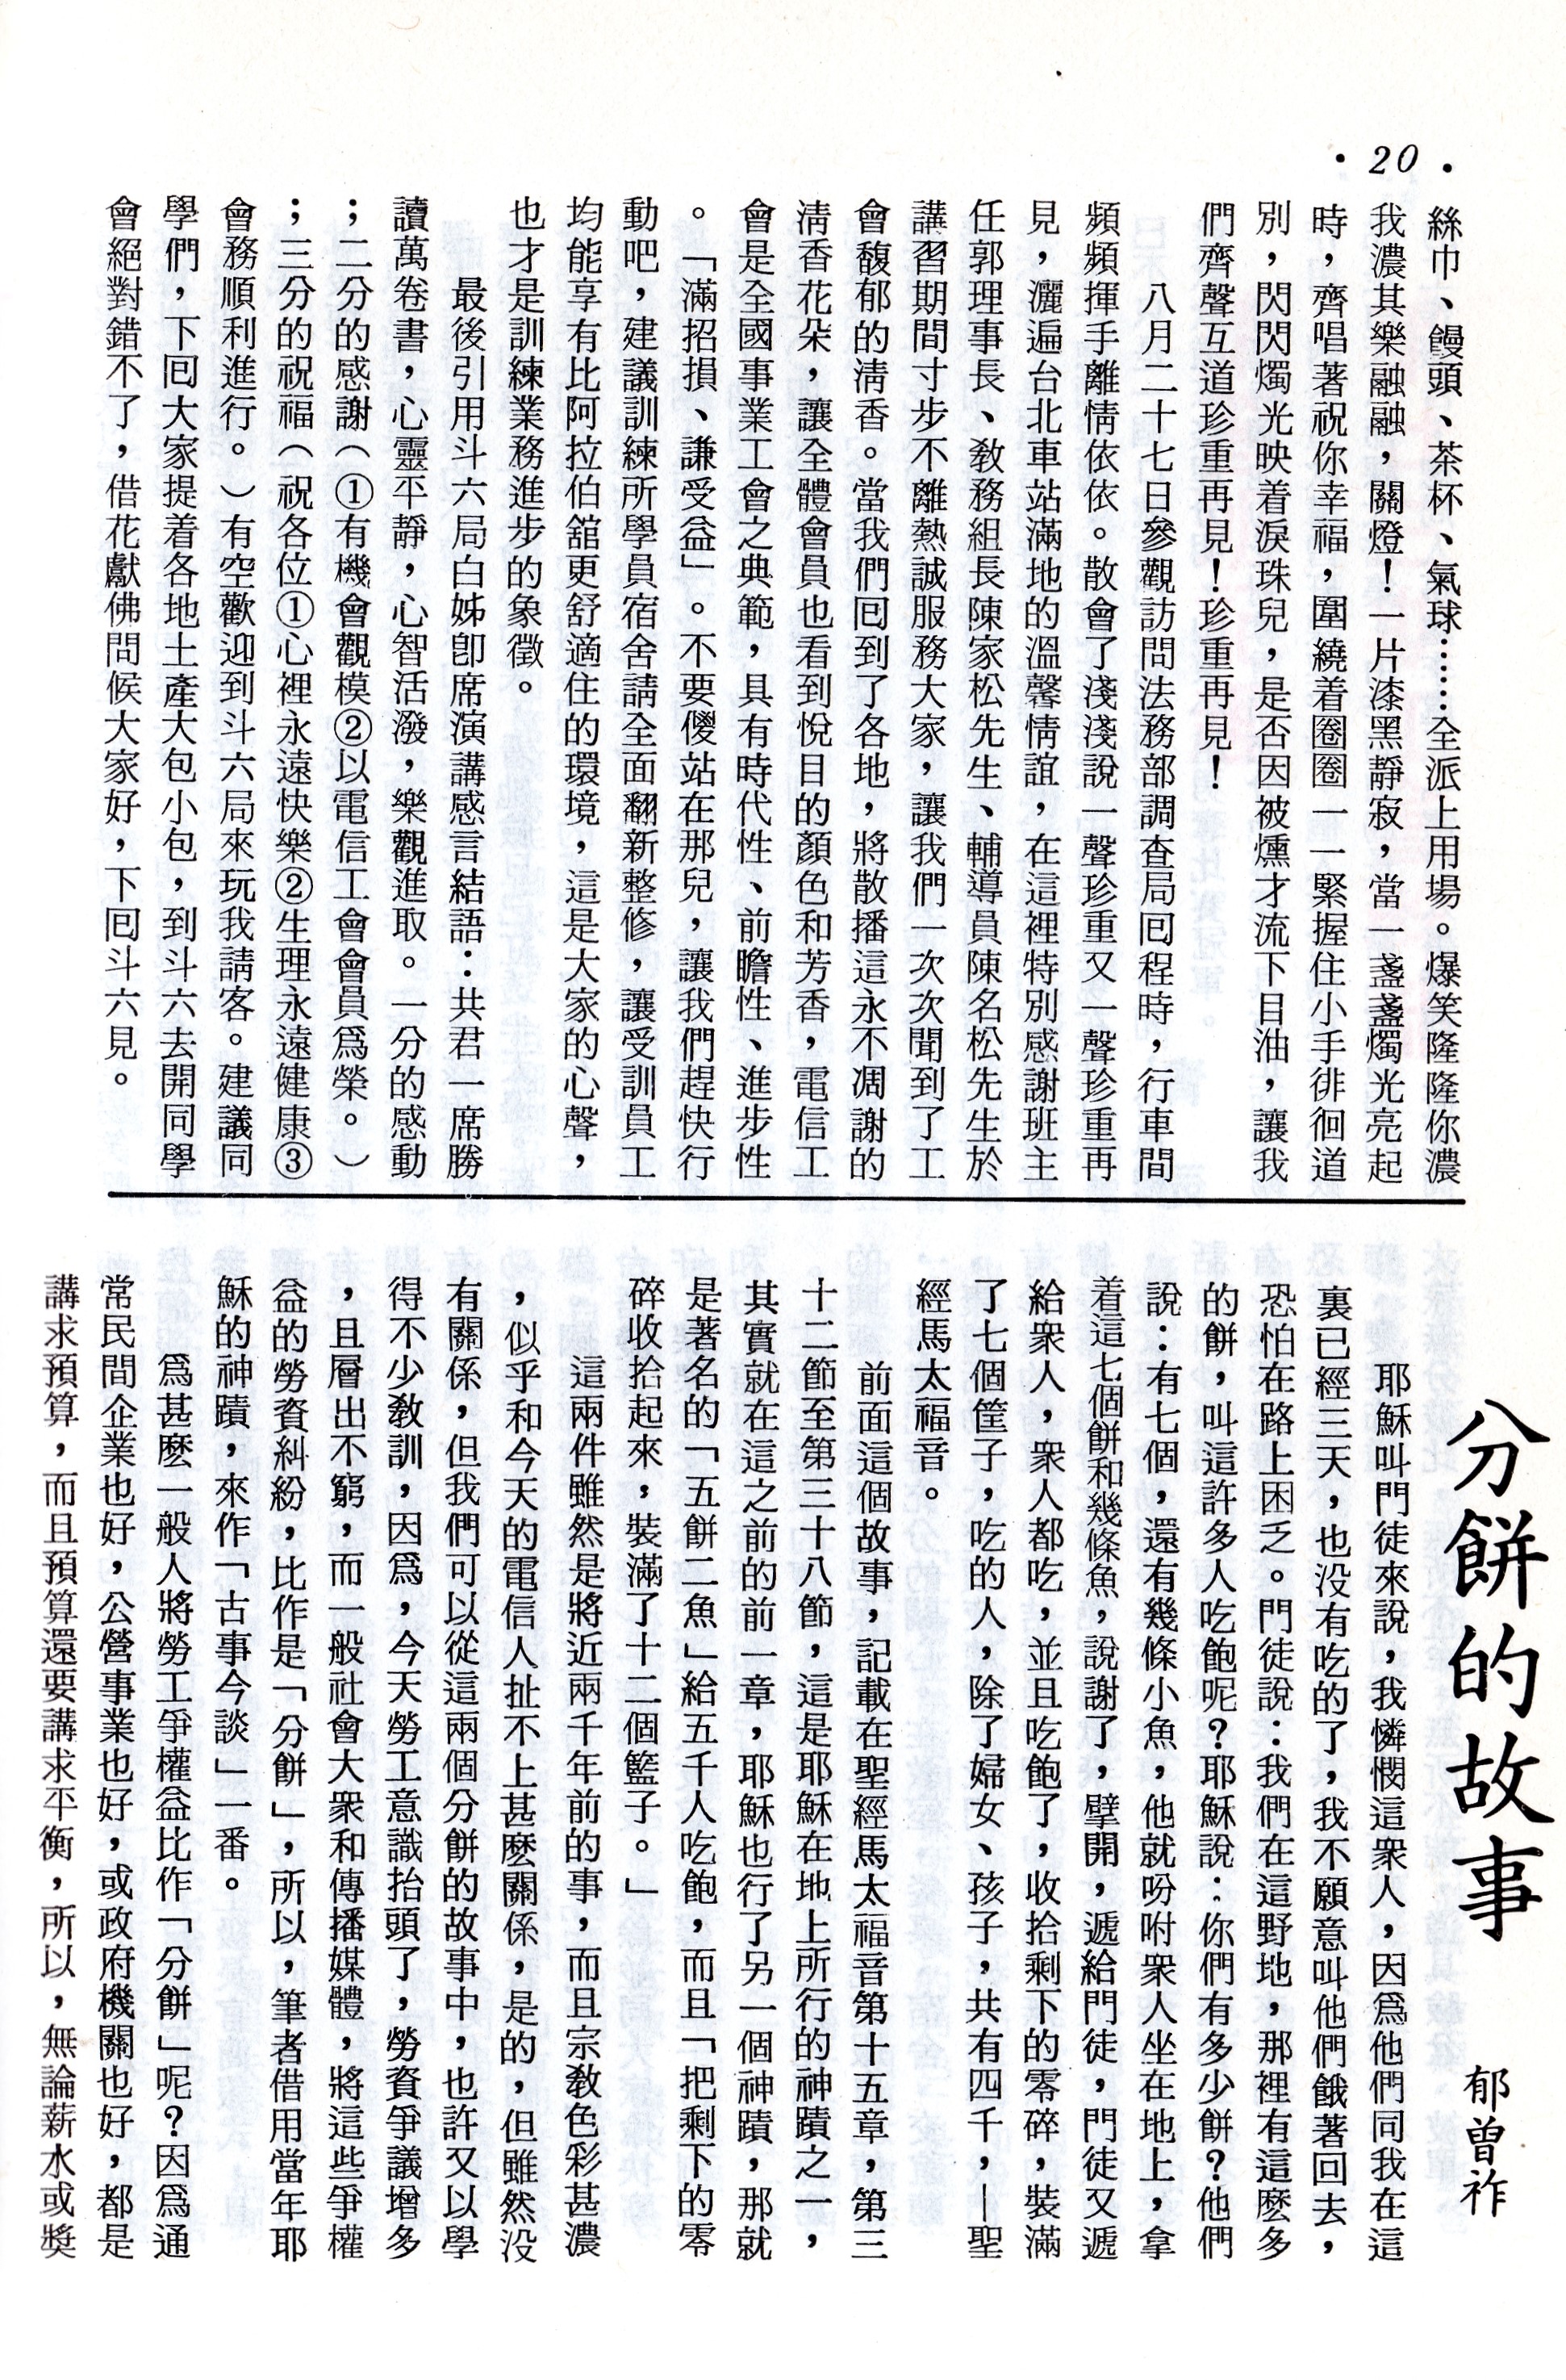 ・20・
絲巾、饅頭、茶杯、氣球……全派上用場。爆笑隆隆你濃
我濃其樂融融，關燈！一片漆黑靜寂，當一盞盞燭光亮起
時，齊唱著祝你幸福，圍繞着圈圈一一緊握住小手徘徊道
別，閃閃燭光映着淚珠兒，是否因被燻才流下目油，讓我
們齊聲互道珍重再見！珍重再見！
八月二十七日參觀訪問法務部調查局回程時，行車間
頻頻揮手離情依依。散會了淺淺說一聲珍重又一聲珍重再
見，灑遍台北車站滿地的溫馨情誼，在這裡特別感謝班主
任郭理事長、教務組長陳家松先生、輔導員陳名松先生於
講習期間寸步不離熱誠服務大家，讓我們一次次聞到了工
會馥郁的淸香。當我們回到了各地，將散播這永不凋謝的
淸香花朵，讓全體會員也看到悅目的顏色和芳香，電信工
會是全國事業工會之典範，具有時代性、前瞻性、進步性
。「滿招損、謙受益」。不要儍站在那兒，讓我們趕快行
動吧，建議訓練所學員宿舍請全面翻新整修，讓受訓員工
均能享有比阿拉伯舘更舒適住的環境，這是大家的心聲，
也才是訓練業務進步的象徵。
最後引用斗六局白姊卽席演講感言結語：共君一席勝
讀萬卷書，心靈平靜，心智活潑，樂觀進取。一分的感動
；二分的感謝（①有機會觀模②以電信工會會員爲榮。）
；三分的祝福（祝各位①心裡永遠快樂②生理永遠健康③
會務順利進行。）有空歡迎到斗六局來玩我請客。建議同
學們，下回大家提着各地土產大包小包，到斗六去開同學
會絕對錯不了，借花獻佛問候大家好，下回斗六見。
分餅的故事
郁曾祚
耶穌叫門徒來說，我憐憫這衆人，因爲他們同我在這
裏已經三天，也没有吃的了，我不願意叫他們餓著回去，
恐怕在路上困乏。門徒說：我們在這野地，那裡有這麽多
的餅，叫這許多人吃飽呢？耶穌說：你們有多少餅？他們
說：有七個，還有幾條小魚，他就吩咐衆人坐在地上，拿
着這七個餅和幾條魚，說謝了，擘開，遞給門徒，門徒又遞
給衆人，衆人都吃，並且吃飽了，收拾剩下的零碎，裝滿
了七個筐子，吃的人，除了婦女、孩子，共有四千，—聖
經馬太福音。
前面這個故事，記載在聖經馬太福音第十五章，第三
十二節至第三十八節，這是耶穌在地上所行的神蹟之一，
其實就在這之前的前一章，耶穌也行了另一個神蹟，那就
是著名的「五餅二魚」給五千人吃飽，而且「把剩下的零
碎收拾起來，裝滿了十二個籃子。」
這兩件雖然是將近兩千年前的事，而且宗教色彩甚濃
，似乎和今天的電信人扯不上甚麽關係，是的，但雖然没
有關係，但我們可以從這兩個分餅的故事中，也許又以學
得不少敎訓，因爲，今天勞工意識抬頭了，勞資爭議增多
，且層出不窮，而一般社會大衆和傳播媒體，將這些爭權
益的勞資糾紛，比作是「分餅」，所以，筆者借用當年耶
穌的神蹟，來作「古事今談」一番。
爲甚麽一般人將勞工爭權益比作「分餅」呢？因爲通
常民間企業也好，公營事業也好，或政府機關也好，都是
講求預算，而且預算還要講求平衡，所以，無論薪水或獎